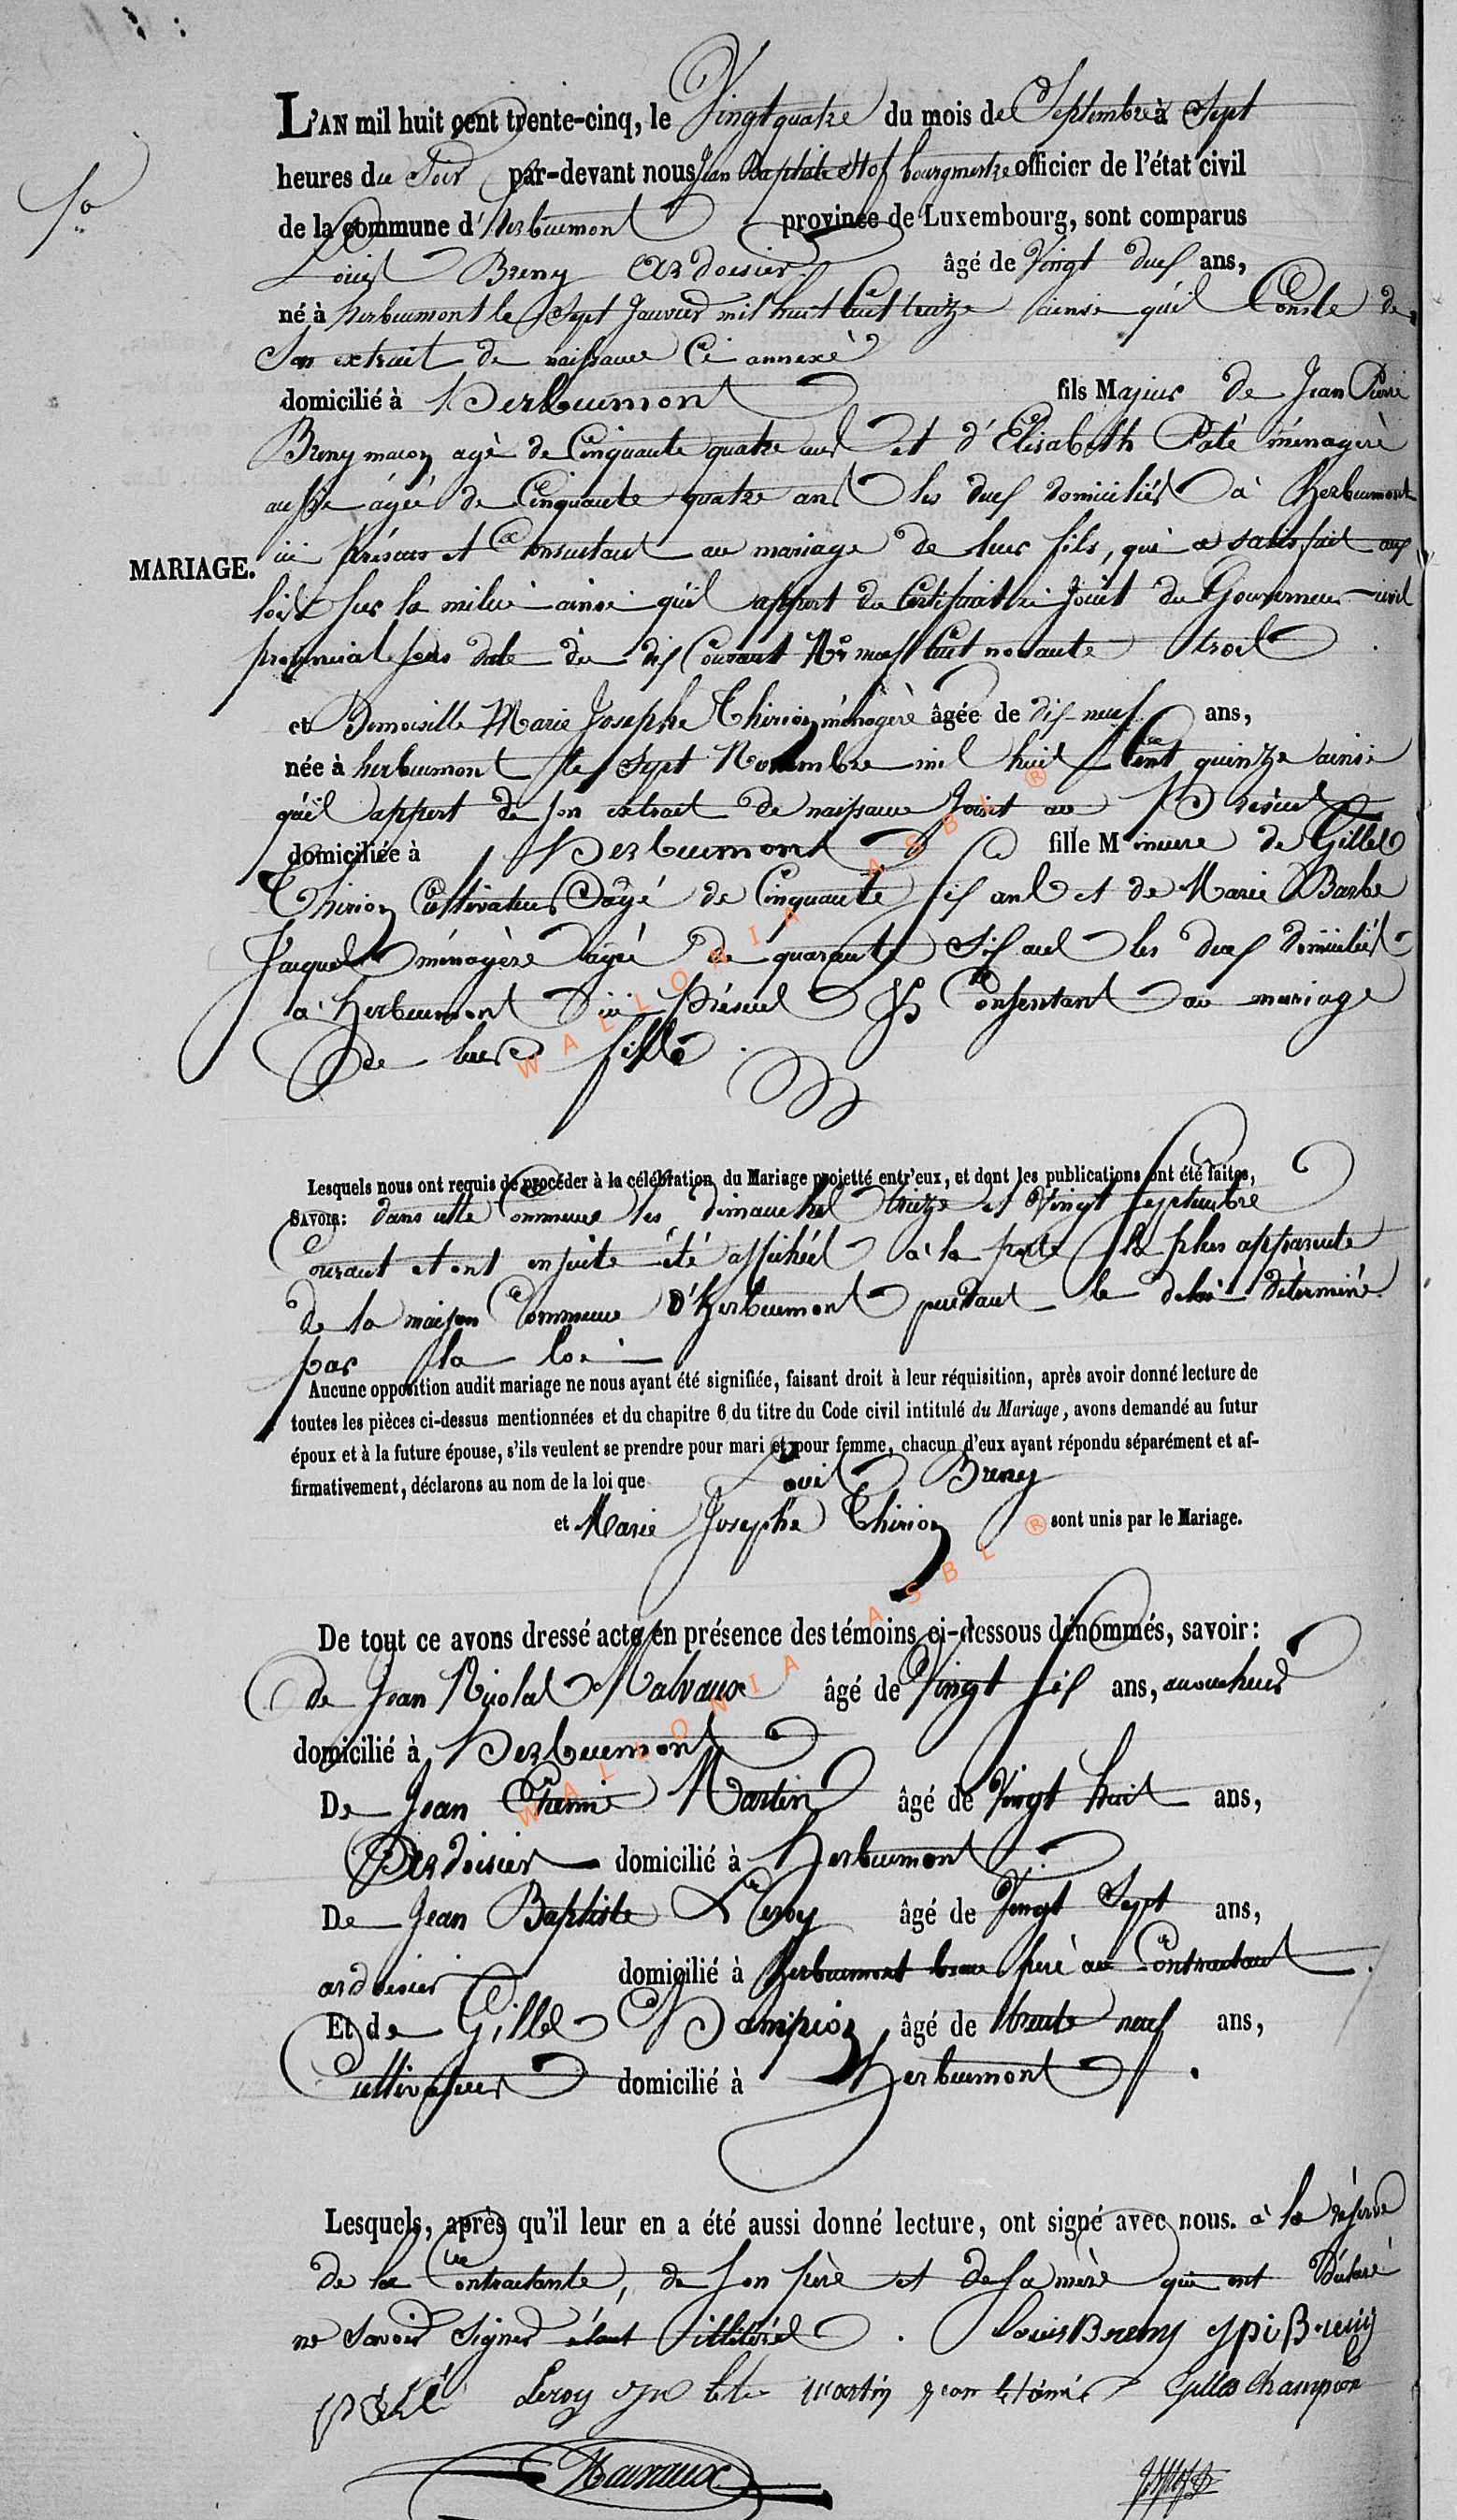 L'AN mil huit cent trente-cinq, le Vingt quatre du mois de Septembre à Sept
heures du Soir par-devant nous Jean Baptiste Hof bourgmestre officier de l'état civil
de la commune d'herbeumont province de Luxembourg, sont comparus
Louis Breny Ardoisier âgé de Vingt deux ans,
né à herbeumont le Sept Janvier mil huit Cent treize ainsi qu'il Conste de
Son extrait de naissance Ci annexé
domicilié à Herbeumont fils Majeur de Jean Pierre
Breny macon agé de Cinquante quatre ans et d'Elisabeth Paté ménagère
aussi agée de Cinquante quatre ans les deux domiciliés à herbeumont
MARIAGE.
ici présens et Consentant au mariage de leur fils, qui a satisfait aux
loix sur la milice ainsi qu'il appert du Certificat ci Joint du Gouverneur civil
provincial sous date du dix Courant Nº neuf Cent nonante trois
et Demoiselle Marie Josephe Thirion ménagère âgée de dix-neuf ans,
née à herbeumont le Sept Novembre mil huit Cent quinze ainsi
qu'il appert de son extrait de naissance Joint au Présent
domiciliée à Herbeumont fille Mineure de Gilles
Thirion Cultivateur agé de Cinquante six ans et de Marie Barbe
Jacques ménagère agée de quarante Six ans les deux domiciliés
a herbeumont ici Présent & Consentant au mariage
de leur fille
Lesquels nous ont requis de procéder à la célébration du Mariage projetté entr'eux, et dont les publications ont été faites,
SAVOIR: dans cette Commune les dimanches treize et Vingt Septembre
Courant et ont ensuite été affichées à la porte la plus apparente
de la maison Commune d'herbeumont pendant le delai déterminé
par la loi
Aucune opposition audit mariage ne nous ayant été signifiée, faisant droit à leur réquisition, après avoir donné lecture de
toutes les pièces ci-dessus mentionnées et du chapitre 6 du titre du Code civil intitulé du Mariage, avons demandé au futur
époux et à la future épouse, s'ils veulent se prendre pour mari et pour femme, chacun d'eux ayant répondu séparément et af-
firmativement, déclarons au nom de la loi que Louis Breny
et Marie Josephe Thirion sont unis par le Mariage.
De tout ce avons dressé acte en présence des témoins ci-dessous dénommés, savoir:
de Jean Nicolas Malvaux âgé de Vingt six ans, accoucheur
domicilié à Herbeumont
De Jean Martin âgé de Vingt huit ans,
Ardoisier domicilié à herbeumont
De Jean Baptiste Leroy âgé de Vingt Sept ans,
ardoisier domicilié à herbeumont beau frère au Contractant
Et de Gilles Champion âgé de trente neuf ans,
Cultivateur domicilié à herbeumont
Lesquels, après qu'il leur en a été aussi donné lecture, ont signé avec nous. à la réserve
de la Contractante, de son père et de sa mère qui ont Déclaré
ne Savoir Signer étant illitérés. Louis Breny jpi Breny
Leroy martin jean Gilles Champion
WALLONIA ASBL ®
WALLONIA ASBL ®